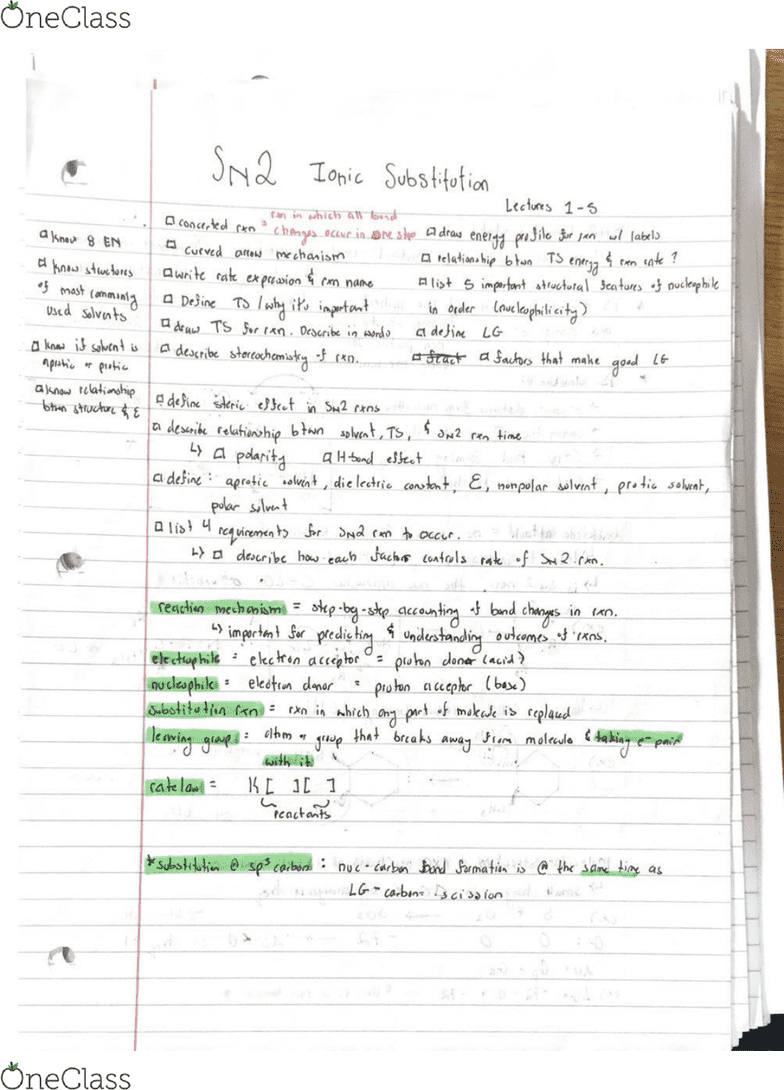 OneClass
SN2 Ionic Substitution
Lectures 1-5
□ know 8 EN
□ know structures
of most commonly
used solvents
□ know if solvent is
aprotic or protic
□ know relationship
btwn structure & ε
□ concerted rxn = rxn in which all bond
changes occur in one step
□ curved arrow mechanism
□ write rate expression & rxn name
□ Define TS / why it's important
□ draw TS for rxn. Describe in words
□ describe stereochemistry of rxn.
□ draw energy profile for rxn w/ labels
□ relationship btwn TS energy & rxn rate?
□ list 5 important structural features of nucleophile
in order (nucleophilicity)
□ define LG
□ factors that make good LG
□ define steric effect in SN2 rxns
□ describe relationship btwn solvent, TS, & SN2 rxn time
↳ □ polarity □ H-bond effect
□ define: aprotic solvent, dielectric constant, ε, nonpolar solvent, protic solvent,
polar solvent
□ list 4 requirements for SN2 rxn to occur.
↳ □ describe how each factor controls rate of SN2 rxn.
reaction mechanism = step-by-step accounting of bond changes in rxn.
↳ important for predicting & understanding outcomes of rxns.
electrophile = electron acceptor = proton donor (acid)
nucleophile = electron donor = proton acceptor (base)
substitution rxn = rxn in which any part of molecule is replaced
leaving group = atom or group that breaks away from molecule & taking e- pair
with it
rate law = K[ ][ ]
reactants
*substitution @ sp³ carbon: nuc-carbon bond formation is @ the same time as
LG-carbon scission
OneClass